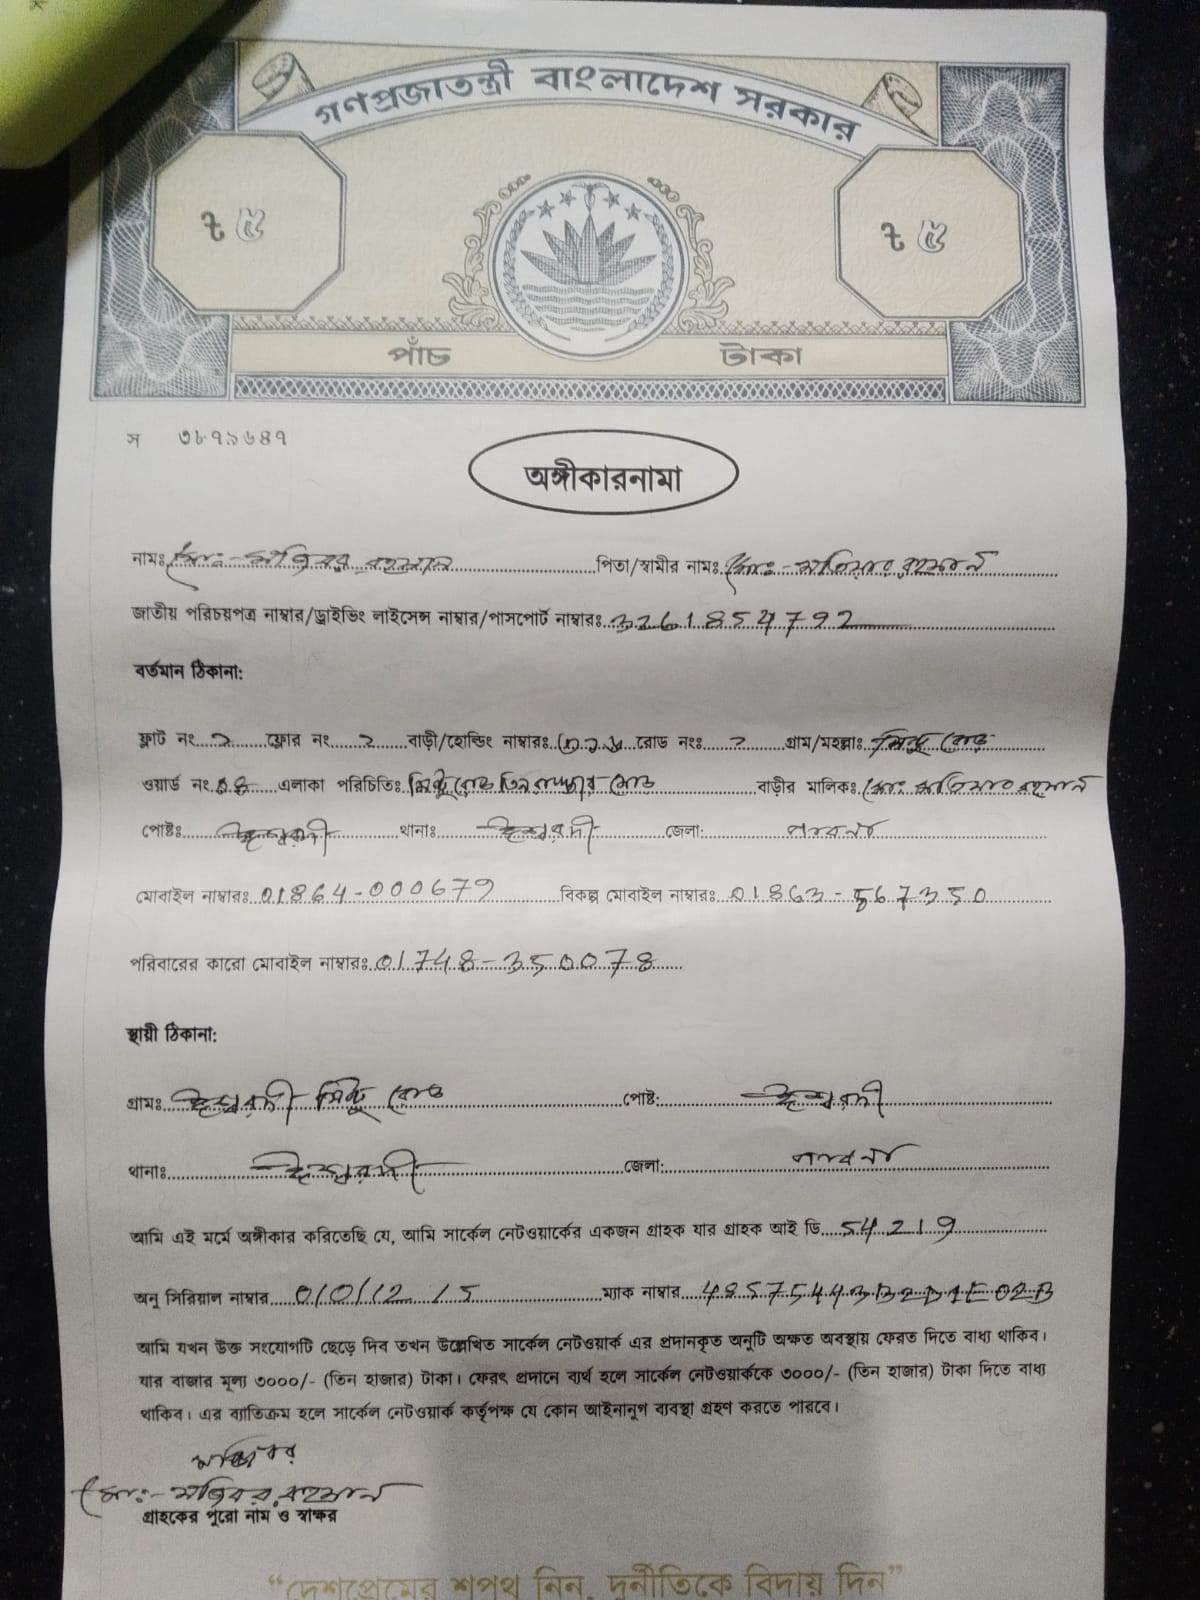 গণপ্রজাতন্ত্রী বাংলাদেশ সরকার
৳ ৫ ৳ ৫
পাঁচ টাকা
স ৩৮৭৯৬৪৭
অঙ্গীকারনামা
নামঃ মোঃ- মজিবর রহমান পিতা/স্বামীর নামঃ মোঃ- মতিয়ার রহমান
জাতীয় পরিচয়পত্র নাম্বার/ড্রাইভিং লাইসেন্স নাম্বার/পাসপোর্ট নাম্বারঃ 3261854792
বর্তমান ঠিকানা:
ফ্লাট নং ২ ফ্লোর নং ২ বাড়ী/হোল্ডিং নাম্বারঃ রোড নংঃ গ্রাম/মহল্লাঃ রোড
ওয়ার্ড নং 08 এলাকা পরিচিতিঃ রোড রোড বাড়ীর মালিকঃ মোঃ মতিয়ার রহমান
পোষ্টঃ ঈশ্বরদী থানাঃ ঈশ্বরদী জেলা: পাবনা
মোবাইল নাম্বারঃ 01864-000679 বিকল্প মোবাইল নাম্বারঃ 01863-567350
পরিবারের কারো মোবাইল নাম্বারঃ 01748-350078
স্থায়ী ঠিকানা:
গ্রামঃ ঈশ্বরদী রোড পোষ্ট: ঈশ্বরদী
থানাঃ ঈশ্বরদী জেলা: পাবনা
আমি এই মর্মে অঙ্গীকার করিতেছি যে, আমি সার্কেল নেটওয়ার্কের একজন গ্রাহক যার গ্রাহক আই ডি 54219
অনু সিরিয়াল নাম্বার 0/0/12/15 ম্যাক নাম্বার 48575443B2D1E02B
আমি যখন উক্ত সংযোগটি ছেড়ে দিব তখন উল্লেখিত সার্কেল নেটওয়ার্ক এর প্রদানকৃত অনুটি অক্ষত অবস্থায় ফেরত দিতে বাধ্য থাকিব।
যার বাজার মূল্য ৩০০০/- (তিন হাজার) টাকা। ফেরৎ প্রদানে ব্যর্থ হলে সার্কেল নেটওয়ার্ককে ৩০০০/- (তিন হাজার) টাকা দিতে বাধ্য
থাকিব। এর ব্যাতিক্রম হলে সার্কেল নেটওয়ার্ক কর্তৃপক্ষ যে কোন আইনানুগ ব্যবস্থা গ্রহণ করতে পারবে।
মজিবর
মোঃ- মজিবর রহমান
গ্রাহকের পুরো নাম ও স্বাক্ষর
“দেশপ্রেমের শপথ নিন, দুর্নীতিকে বিদায় দিন”